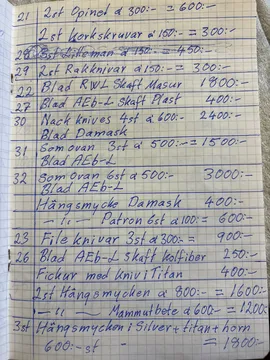 21 2st Opinel a 300:- = 600:-
2st Korkskruvar a 150:- = 300:-
28 3st Lilleman a 150:- = 450:-
29 2st Rakknivar a 150:- = 300:-
22 Blad RWL Skaft Masur 1800:-
27 Blad AEb-L Skaft Plast 400:-
30 Nack knives 4st a 600:- 2400:-
Blad Damask
31 Som ovan 3st a 500:- = 1500:-
Blad AEb-L
32 Som ovan 6st a 500:- 3000:-
Blad AEb-L
Hängsmycke Damask 400:-
-"- Patron 6st a 100:= 600:-
23 File knivar 3st a 300:= 900:-
26 Blad AEb-L Skaft Kolfiber 250:-
Fickur med Kniv i Titan 400:-
2st Hängsmycken a 800:- = 1600:-
-"- Mammutbete a 600:- = 1200:-
3st Hängsmycken i Silver + titan + horn
600:-st = 1800:-